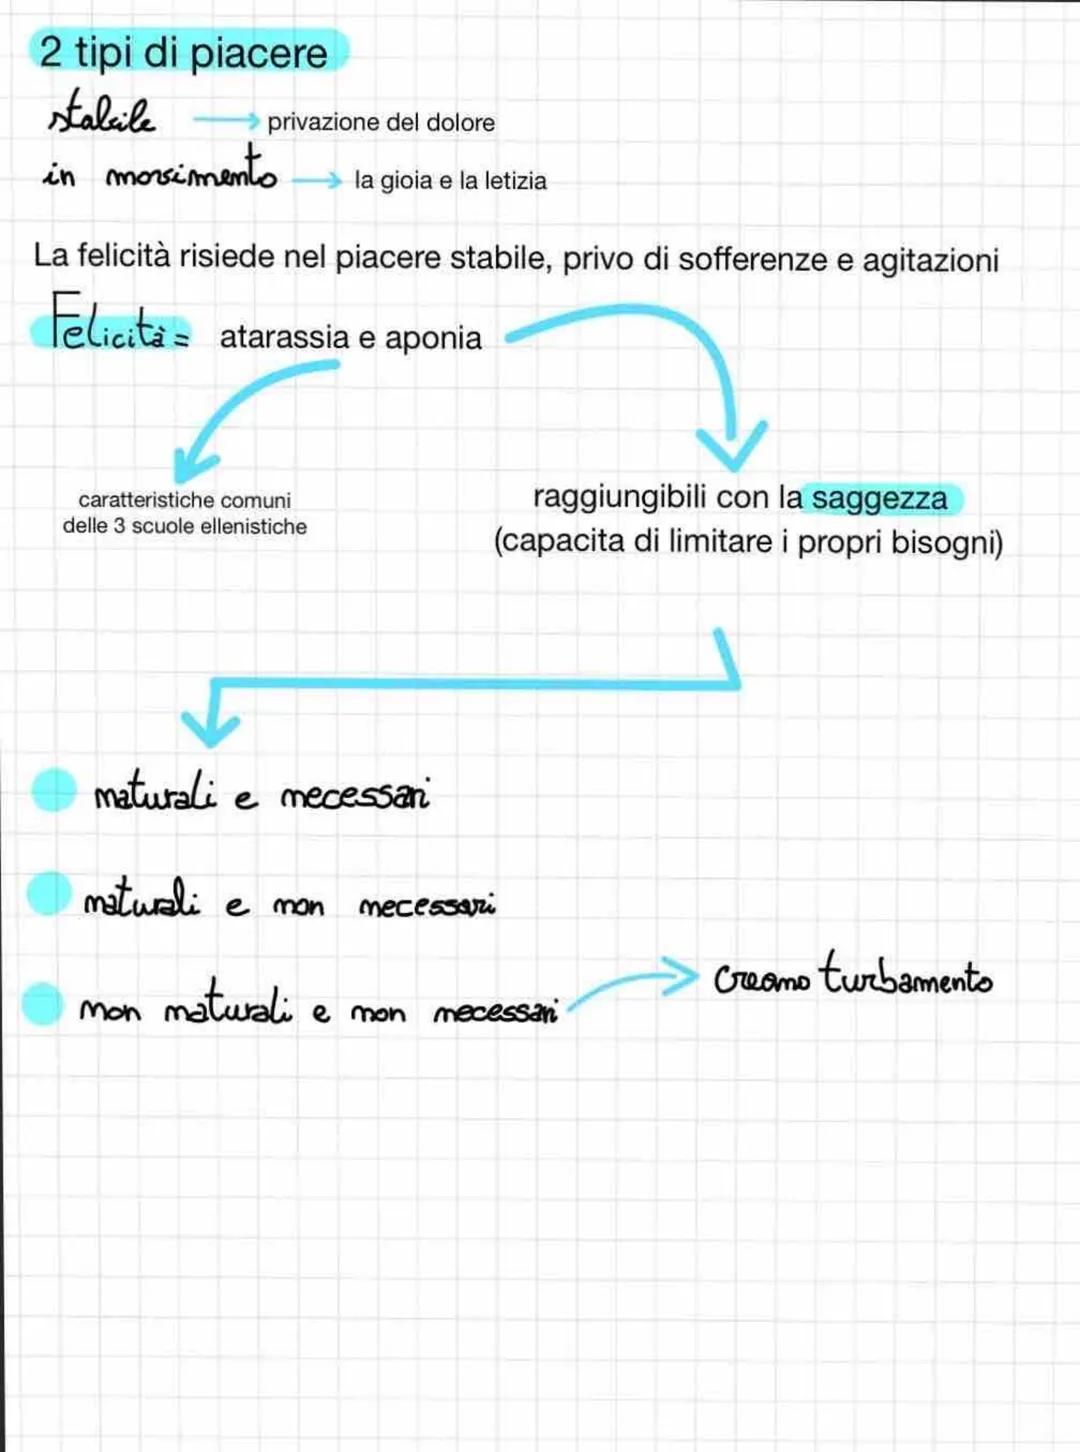 2 tipi di piacere
stabile → privazione del dolore
in movimento → la gioia e la letizia
La felicità risiede nel piacere stabile, privo di sofferenze e agitazioni
Felicità= atarassia e aponia
caratteristiche comuni
delle 3 scuole ellenistiche
raggiungibili con la saggezza
(capacita di limitare i propri bisogni)
naturali e necessari
naturali e non necessari
non naturali e non necessari → creano turbamento